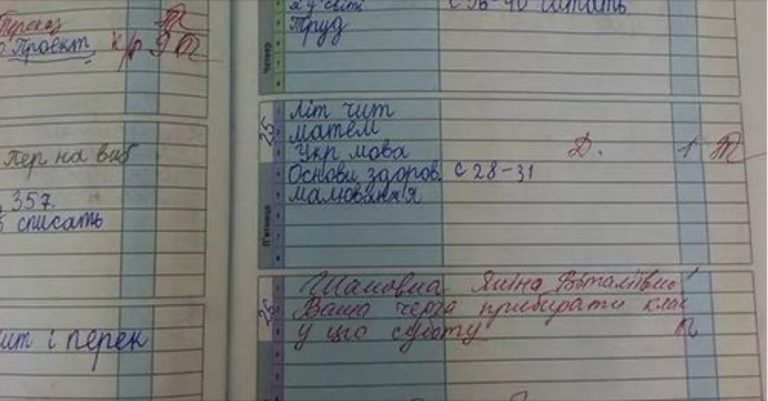 Переказ
Проект к/р 9
Пер на виб
357.
списать
чит і перек
Я у світі с 36-40 читать
Труд
Четвер
25
Літ чит
матем
Укр мова Д. 1
Основи здоров. с 28-31
малювання
П'ятниця
26
Шановна Яніна Віталіївно!
Ваша черга прибирати клас
у цю суботу